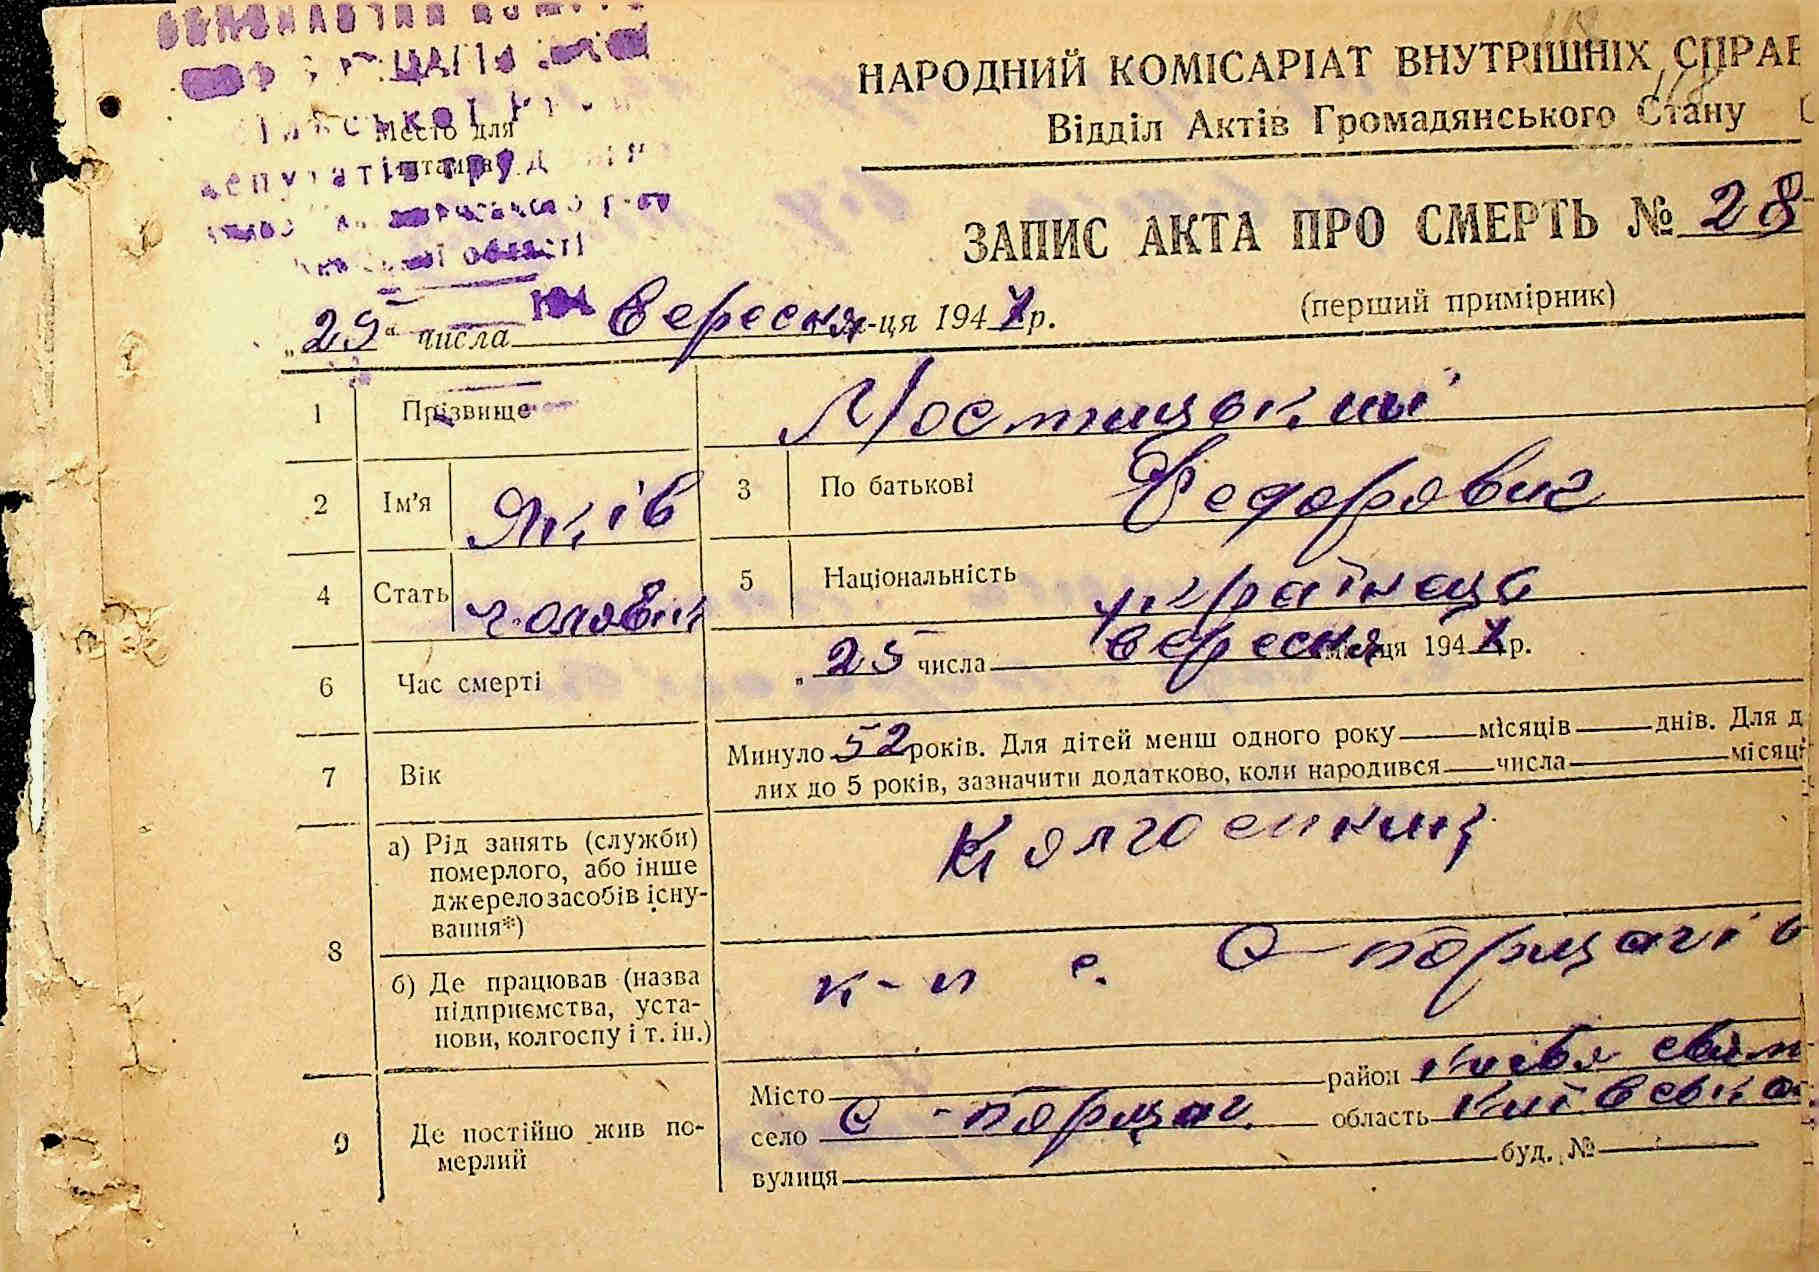 НАРОДНИЙ КОМІСАРІАТ ВНУТРІШНІХ СПРАВ
Відділ Актів Громадянського Стану
Место для
штампа
області
ЗАПИС АКТА ПРО СМЕРТЬ № 28
(перший примірник)
„25“ числа вересня м-ця 1947 р.
1 Прізвище Мостицький
2 Ім'я Яків 3 По батькові Федорович
4 Стать чоловік 5 Національність українець
6 Час смерті „25 числа вересня місяця 1947 р.
7 Вік Минуло 52 років. Для дітей менш одного року місяців днів. Для д
лих до 5 років, зазначити додатково, коли народився числа місяц
8 а) Рід занять (служби)
померлого, або інше
джерело засобів існу-
вання*) Колгоспник
б) Де працював (назва
підприємства, уста-
нови, колгоспу і т. ін.) к-п с. С-Борщагів
9 Де постійно жив по-
мерлий
Місто район Києво Свят
село С-Борщаг. область Київська
вулиця буд. №